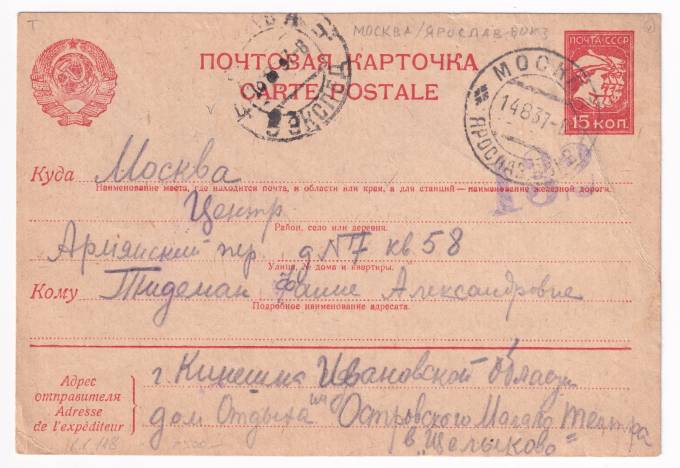 МОСКВА/ЯРОСЛАВ. ВОКЗ
ПОЧТА·СССР
ПОЧТОВАЯ КАРТОЧКА
CARTE POSTALE
15 КОП.
МОСКВА
14837
ЯРОСЛАВ
ЭКСПЕД
Куда Москва
Наименование места, где находится почта, и области или края, а для станций — наименование железной дороги.
Центр
Район, село или деревня.
Армянский пер. д N7 кв 58
Улица, № дома и квартиры.
Кому Тидеман Фаине Александровне
Подробное наименование адресата.
Адрес
отправителя
Adresse
de l'expéditeur
г. Кинешма Ивановской области
дом Отдыха Островского Малого Театра
в "Щелыково"